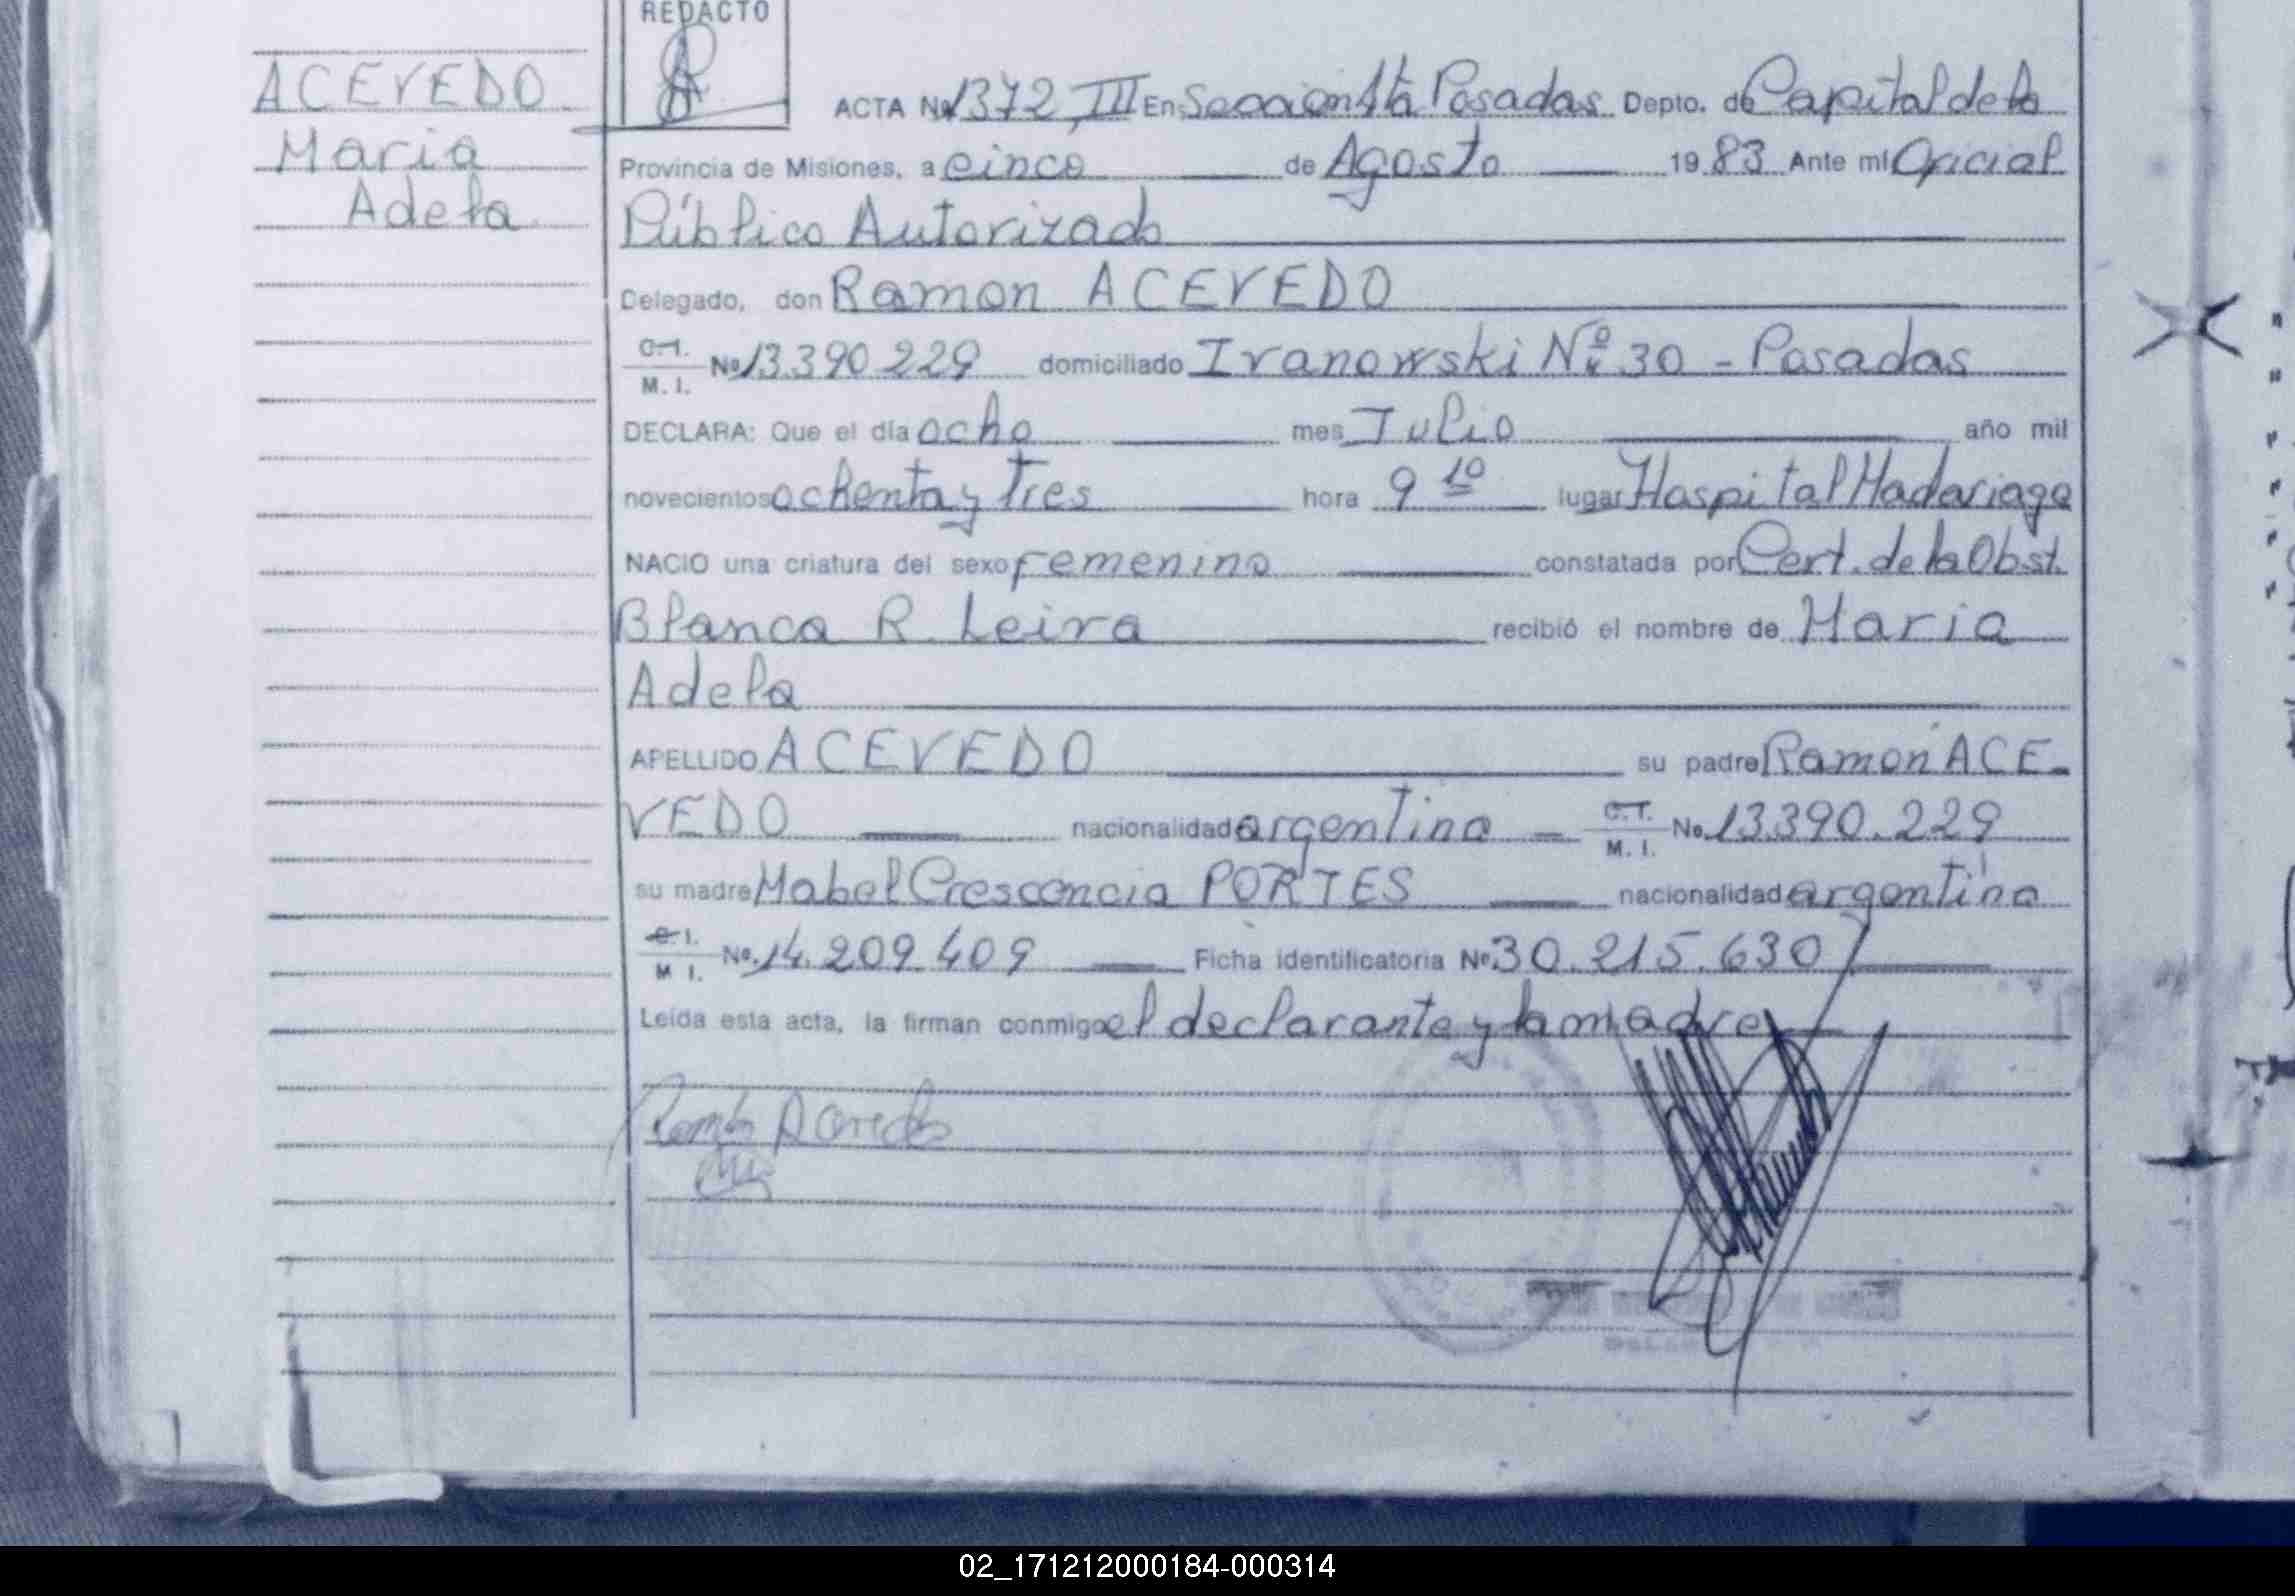 REDACTO
ACEVEDO
Maria
Adela
ACTA Nº 1372, III En Seccion 1ta Posadas Depto. de Capital de la
Provincia de Misiones, a cinco de Agosto 1983 Ante mi Oficial
Público Autorizado
Delegado, don Ramon ACEVEDO
C.I. M.I. Nº 13.390.229 domiciliado Ivanowski Nº 30 - Posadas
DECLARA: Que el día ocho mes Julio año mil
novecientos ochenta y tres hora 9 10 lugar Hospital Madariaga
NACIO una criatura del sexo femenino constatada por Cert. de la Obst.
Blanca R. Leiva recibió el nombre de Maria
Adela
APELLIDO ACEVEDO su padre Ramon ACE-
VEDO nacionalidad argentina C.I. M.I. No. 13.390.229
su madre Mabel Crescencia PORTES nacionalidad argentina
C.I. M.I. No. 14.209.409 Ficha identificatoria Nº 30.215.630
Leída esta acta, la firman conmigo el declarante y la madre
Ramón Acevedo
02_171212000184-000314